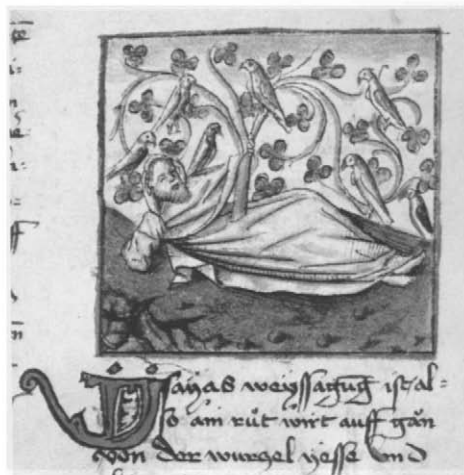 Jsayas weyssagūg ist al=
so ain růt wirt auff gān
von der wurgel yesse vnd